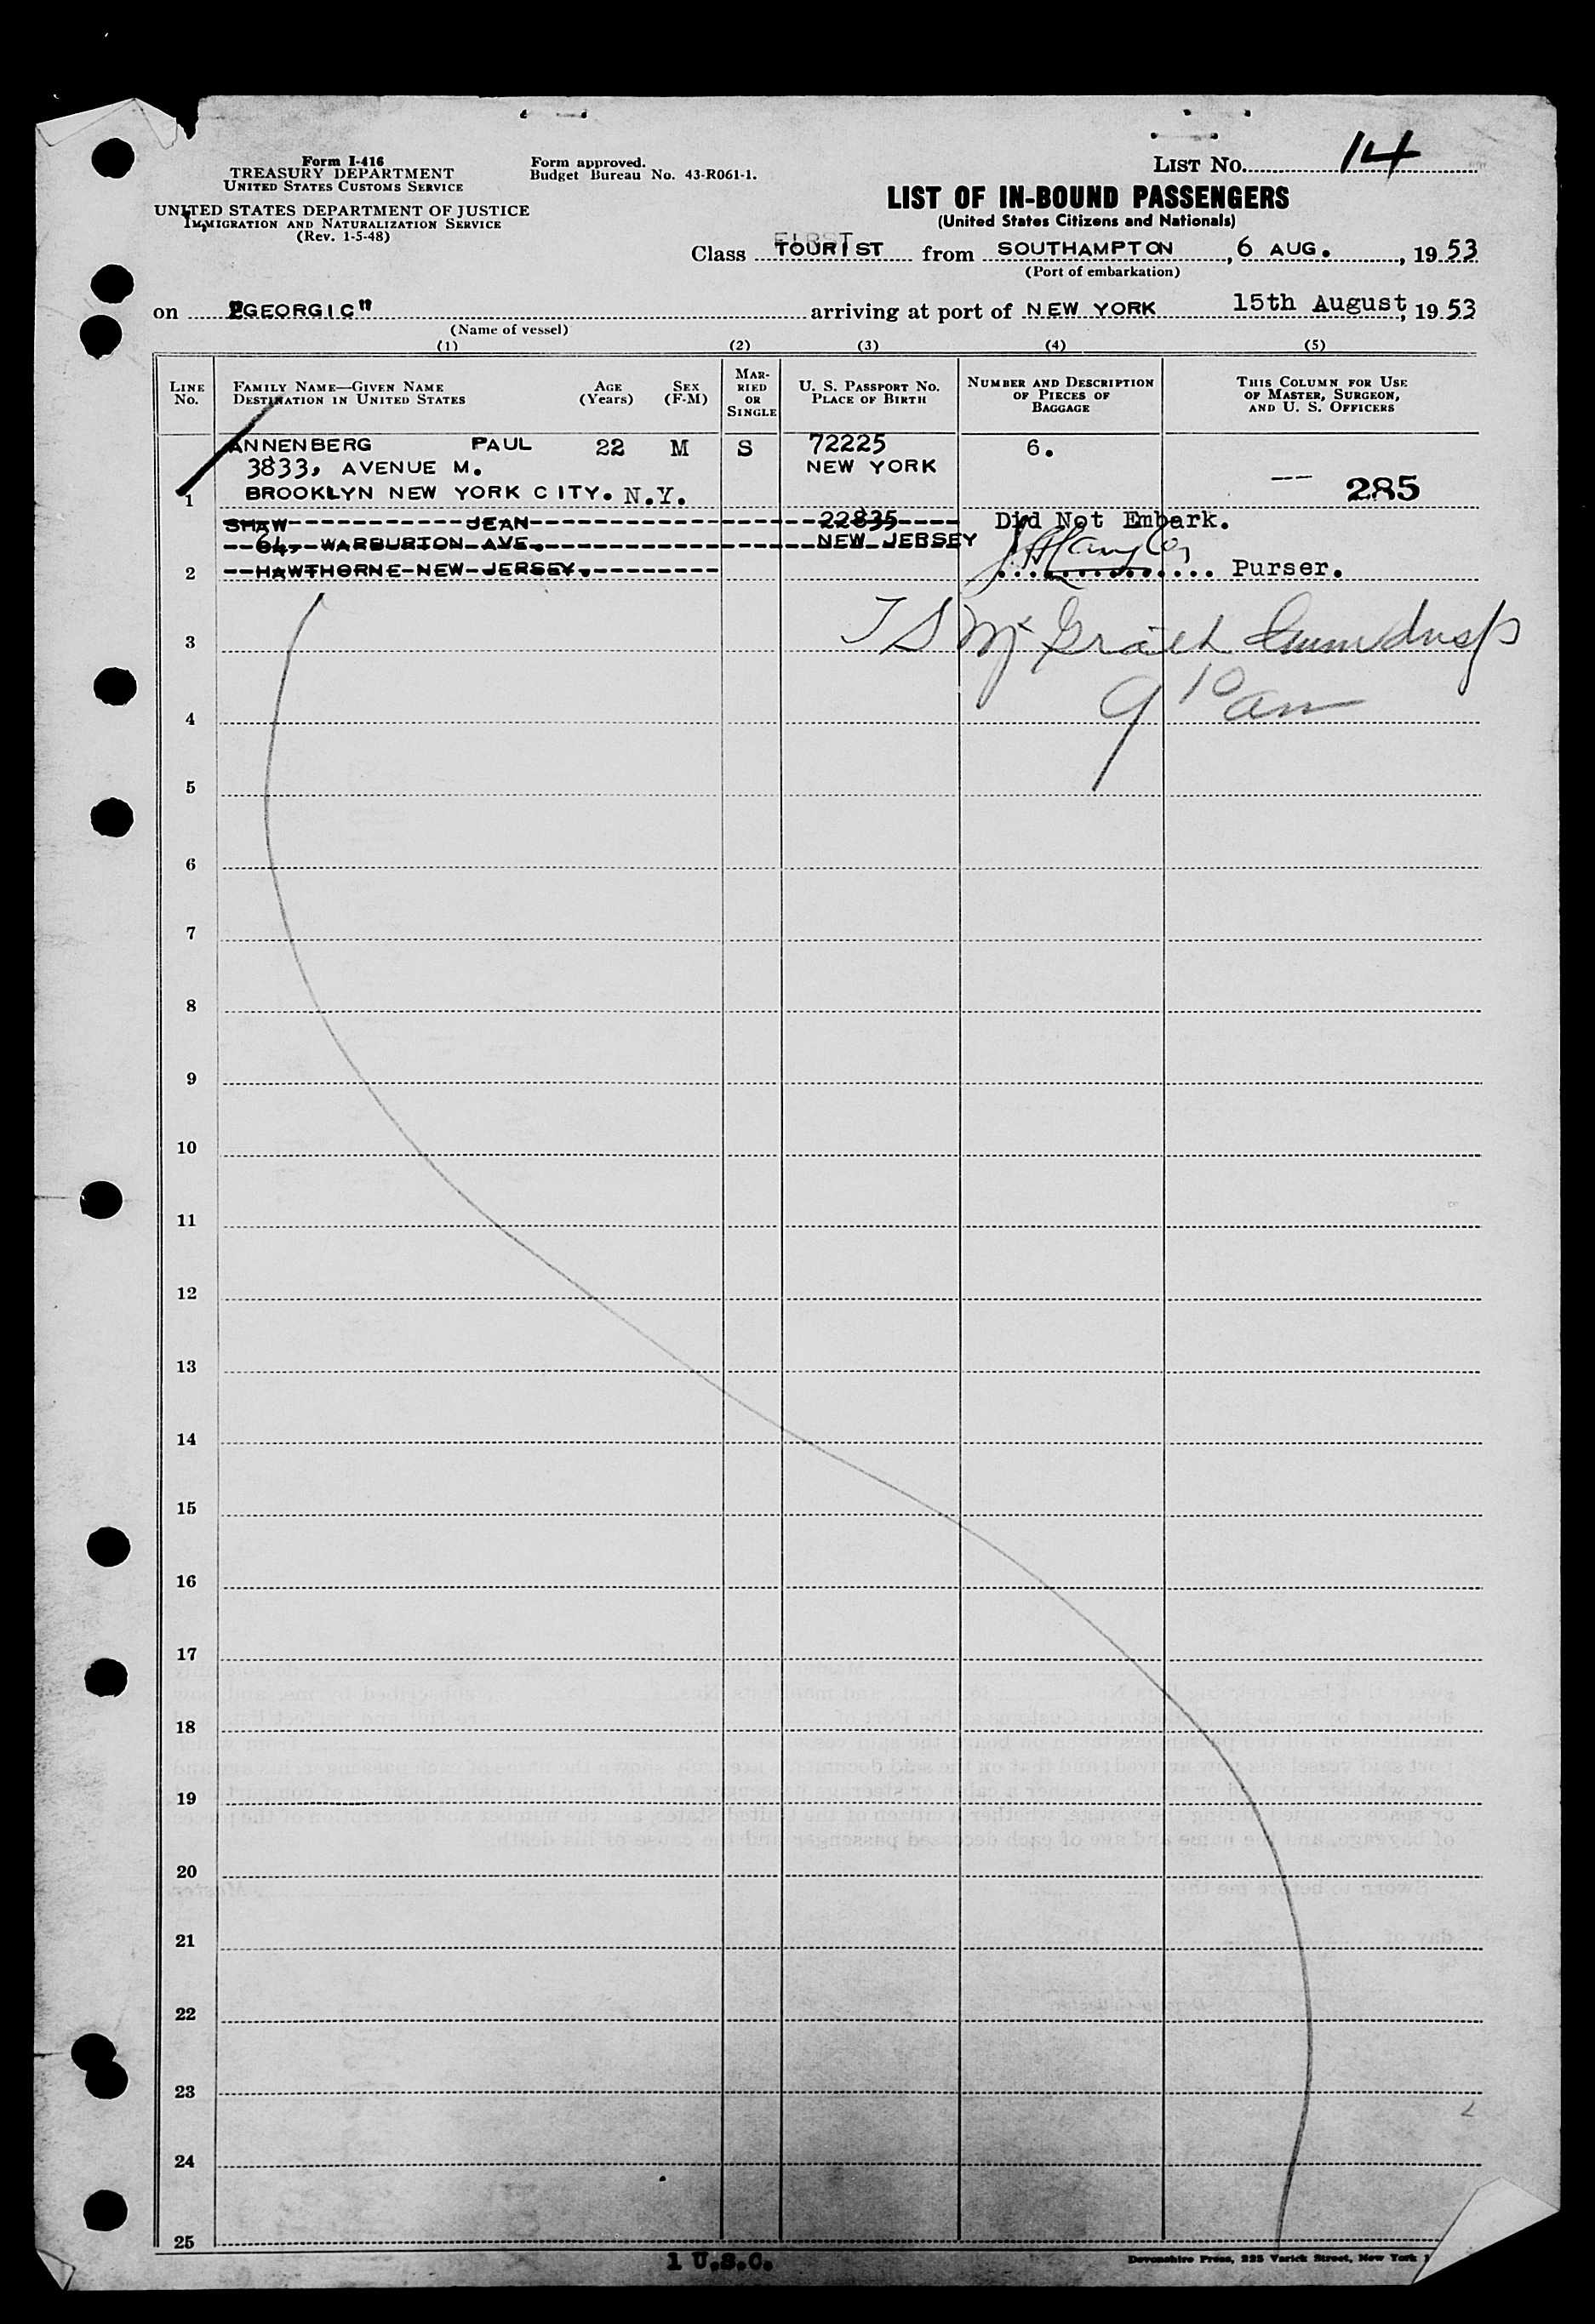 Form I-416
TREASURY DEPARTMENT
UNITED STATES CUSTOMS SERVICE
UNITED STATES DEPARTMENT OF JUSTICE
IMMIGRATION AND NATURALIZATION SERVICE
(Rev. 1-5-48)
Form approved.
Budget Bureau No. 43-R061-1.
LIST No. 14
LIST OF IN-BOUND PASSENGERS
(United States Citizens and Nationals)
Class TOURIST from SOUTHAMPTON, 6 AUG., 1953
(Port of embarkation)
on "GEORGIC" arriving at port of NEW YORK 15th August, 1953
(Name of vessel)
(1) (2) (3) (4) (5)
LINE No.
FAMILY NAME—GIVEN NAME
DESTINATION IN UNITED STATES
AGE (Years)
SEX (F-M)
MARRIED OR SINGLE
U. S. PASSPORT NO.
PLACE OF BIRTH
NUMBER AND DESCRIPTION OF PIECES OF BAGGAGE
THIS COLUMN FOR USE OF MASTER, SURGEON, AND U. S. OFFICERS
ANNENBERG PAUL 22 M S 72225 6.
3833, AVENUE M. NEW YORK
1 BROOKLYN NEW YORK CITY. N.Y. -- 285
SHAW JEAN 22835 Did Not Embark.
64, WARBURTON AVE. NEW JERSEY
2 HAWTHORNE NEW JERSEY. Purser.
3 T S McGrath
4 9 10 am
5
6
7
8
9
10
11
12
13
14
15
16
17
18
19
20
21
22
23
24
25
1 U.S.C.
Devonshire Press, 225 Varick Street, New York